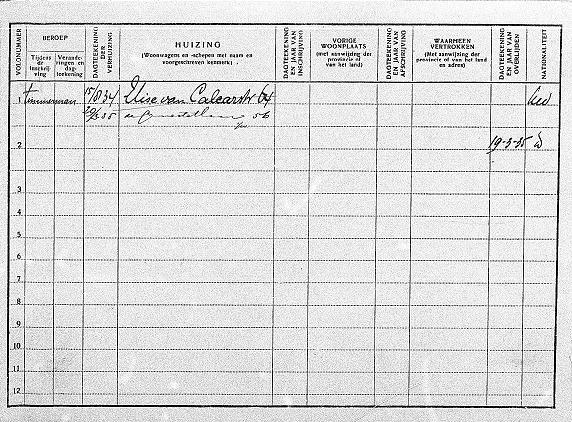 VOLGNUMMER
BEROEP
Tijdens de inschrijving
Veranderingen en dagteekening
DAGTEEKENING DER VERHUIZING
HUIZING
(Woonwagens en -schepen met naam en voorgeschreven kenmerk)
DAGTEEKENING EN JAAR VAN INSCHRIJVING
VORIGE WOONPLAATS
(met aanwijzing der provincie of van het land)
DAGTEEKENING EN JAAR VAN AFSCHRIJVING
WAARHEEN VERTROKKEN
(Met aanwijzing der provincie of van het land en adres)
DAGTEEKENING EN JAAR VAN OVERLIJDEN
NATIONALITEIT
1 timmerman 15/8 34 Elise van Calcarstr 64 Ned
56
2 19-3-35
3
4
5
6
7
8
9
10
11
12